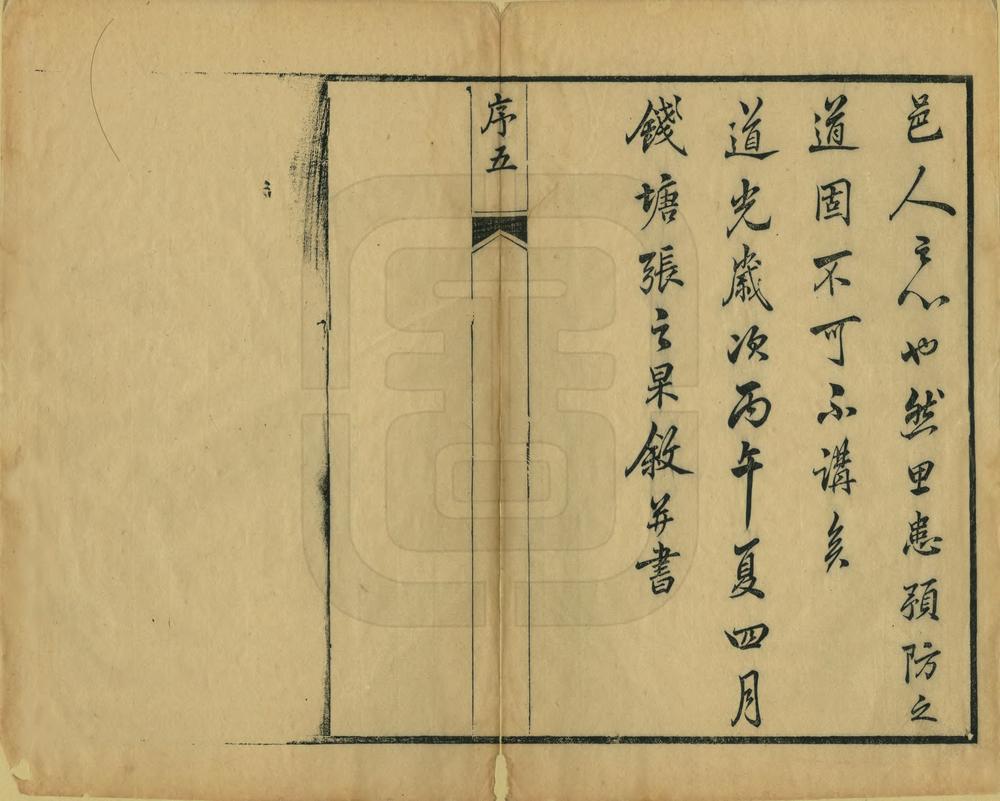 邑人之心也然思患預防之
道固不可不講矣
道光歲次丙午夏四月
錢塘張之杲敘并書
序五